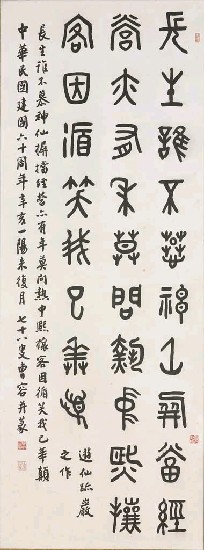 長生誰不慕神仙屏當經
營亦有年莫問熱中熙攘
客因循笑我已華顛
遊仙跡巖
之作
長生誰不慕神仙摒擋經營亦有年莫問熱中熙攘客因循笑我已華顛
中華民國建國六十周年辛亥一陽來復月 七十八叟曹容并篆